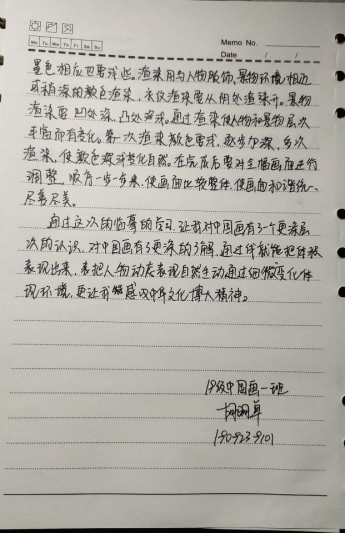 Memo No.
Mo Tu We Th Fr Sa Su
Date / /
墨色相应也要浅些。渲染用与人物服饰、景物环境相近
或稍深的颜色渲染，衣纹渲染要从阴处渲染开。景物
渲染要凹处深，凸处浅。通过渲染使人物和景物层次
丰富而有变化。第一次渲染颜色要浅，逐步加深，多次
渲染，使颜色深浅变化自然。在完成后要对主播画面进行
调整，顺有一步一步来，使画面比较整体，使画面和谐统一、
尽善尽美。
通过这次的临摹的学习，让我对中国画有了一个更深层
次的认识，对中国画有了更深的了解，通过线就能把体积
表现出来，表把人物动态表现自然生动通过细微变化体
现环境，更让我感叹中华文化博大精神。
19级中国画一班
190923-9101